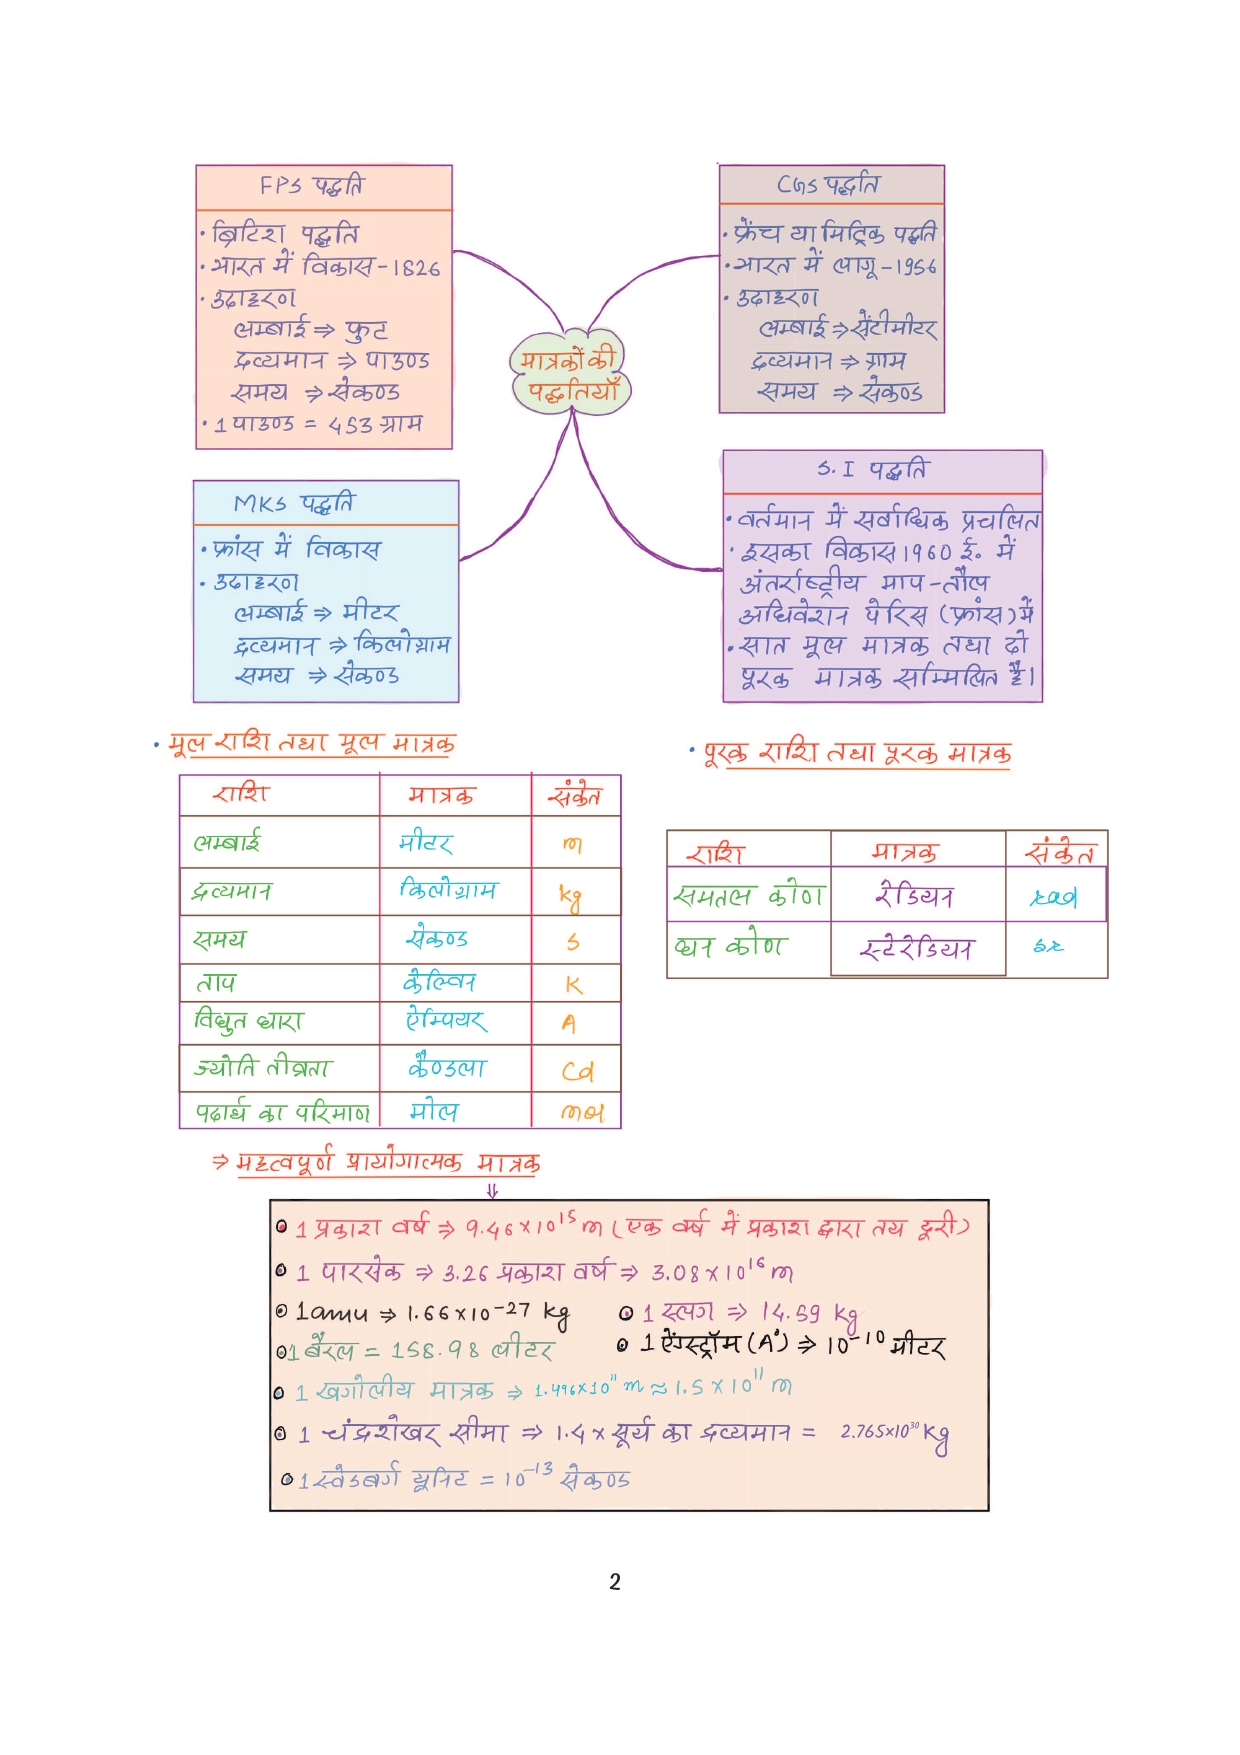 FPS पद्धति
• ब्रिटिश पद्धति
• भारत में विकास - 1826
• उदाहरण
लम्बाई ⇒ फुट
द्रव्यमान ⇒ पाउण्ड
समय ⇒ सेकण्ड
• 1 पाउण्ड = 453 ग्राम
CGS पद्धति
• फ्रेंच या मिट्रिक पद्धति
• भारत में लागू - 1956
• उदाहरण
लम्बाई ⇒ सेंटीमीटर
द्रव्यमान ⇒ ग्राम
समय ⇒ सेकण्ड
मात्रकों की
पद्धतियाँ
MKS पद्धति
• फ्रांस में विकास
• उदाहरण
लम्बाई ⇒ मीटर
द्रव्यमान ⇒ किलोग्राम
समय ⇒ सेकण्ड
S.I पद्धति
• वर्तमान में सर्वाधिक प्रचलित
• इसका विकास 1960 ई० में
अंतर्राष्ट्रीय माप - तौल
अधिवेशन पेरिस (फ्रांस) में
• सात मूल मात्रक तथा दो
पूरक मात्रक सम्मिलित है।
• मूल राशि तथा मूल मात्रक
राशि मात्रक संकेत
लम्बाई मीटर m
द्रव्यमान किलोग्राम kg
समय सेकण्ड s
ताप केल्विन K
विधुत धारा ऐम्पियर A
ज्योति तीव्रता कैण्डला Cd
पदार्थ का परिमाण मोल mol
• पूरक राशि तथा पूरक मात्रक
राशि मात्रक संकेत
समतल कोण रेडियन rad
घन कोण स्टेरेडियन sr
⇒ महत्वपूर्ण प्रायोगात्मक मात्रक
⇓
• 1 प्रकाश वर्ष ⇒ 9.46×10¹⁵ m (एक वर्ष में प्रकाश द्वारा तय दूरी)
• 1 पारसेक ⇒ 3.26 प्रकाश वर्ष ⇒ 3.08×10¹⁶ m
• 1amu ⇒ 1.66×10⁻²⁷ kg • 1 स्लग ⇒ 14.59 kg
• 1 बैरल = 158.98 लीटर • 1 ऐंग्स्ट्रॉम (A°) ⇒ 10⁻¹⁰ मीटर
• 1 खगोलीय मात्रक ⇒ 1.496×10¹¹ m ≈ 1.5×10¹¹ m
• 1 चंद्रशेखर सीमा ⇒ 1.4 × सूर्य का द्रव्यमान = 2.765×10³⁰ kg
• 1 स्वेडबर्ग यूनिट = 10⁻¹³ सेकण्ड
2